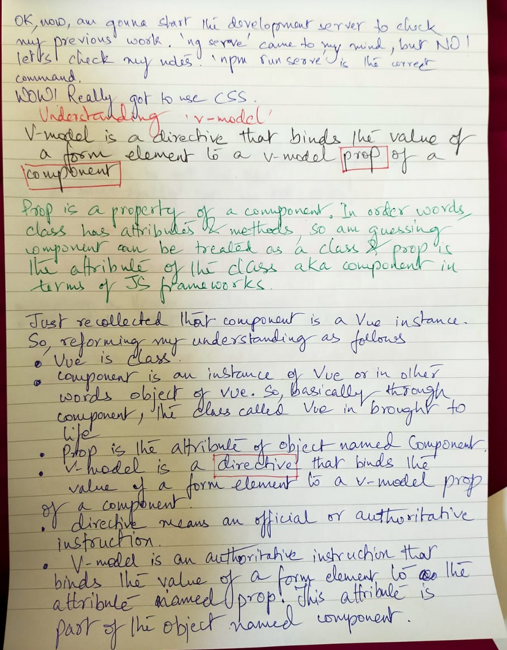 OK, now, am gonna start the development server to check
my previous work. 'ng serve' came to my mind, but NO!
let's check my notes. 'npm run serve' is the correct
command.
WOW! Really got to use CSS.
Understanding 'v-model'
V-model is a directive that binds the value of
a form element to a v-model prop of a
component
Prop is a property of a component. In order words,
class has attributes & methods, so am guessing
component can be treated as a class & prop is
the attribute of the class aka component in
terms of JS frameworks.
Just recollected that component is a Vue instance.
So, reforming my understanding as follows
• Vue is class.
• component is an instance of Vue or in other
words object of Vue. So, basically through
component, the class called Vue in brought to
life
• Prop is the attribute of object named Component.
• V-model is a directive that binds the
value of a form element to a v-model prop
of a component.
• directive means an official or authoritative
instruction.
• V-model is an authoritative instruction that
binds the value of a form element to the
attribute named prop. This attribute is
part of the object named component.